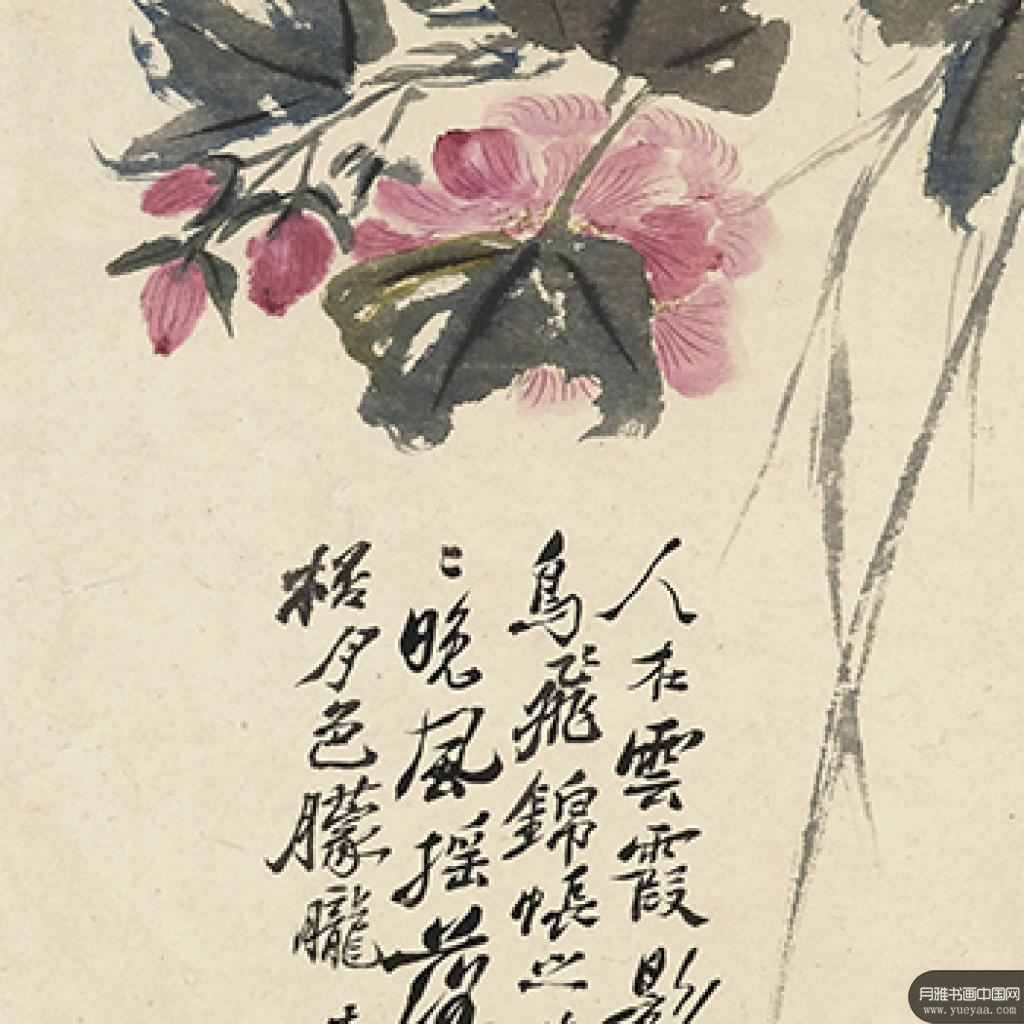 人在雲霞影
鳥飛錦帳之
晚風摇落
月色朦朧
月雅书画中国网
www.yueyaa.com